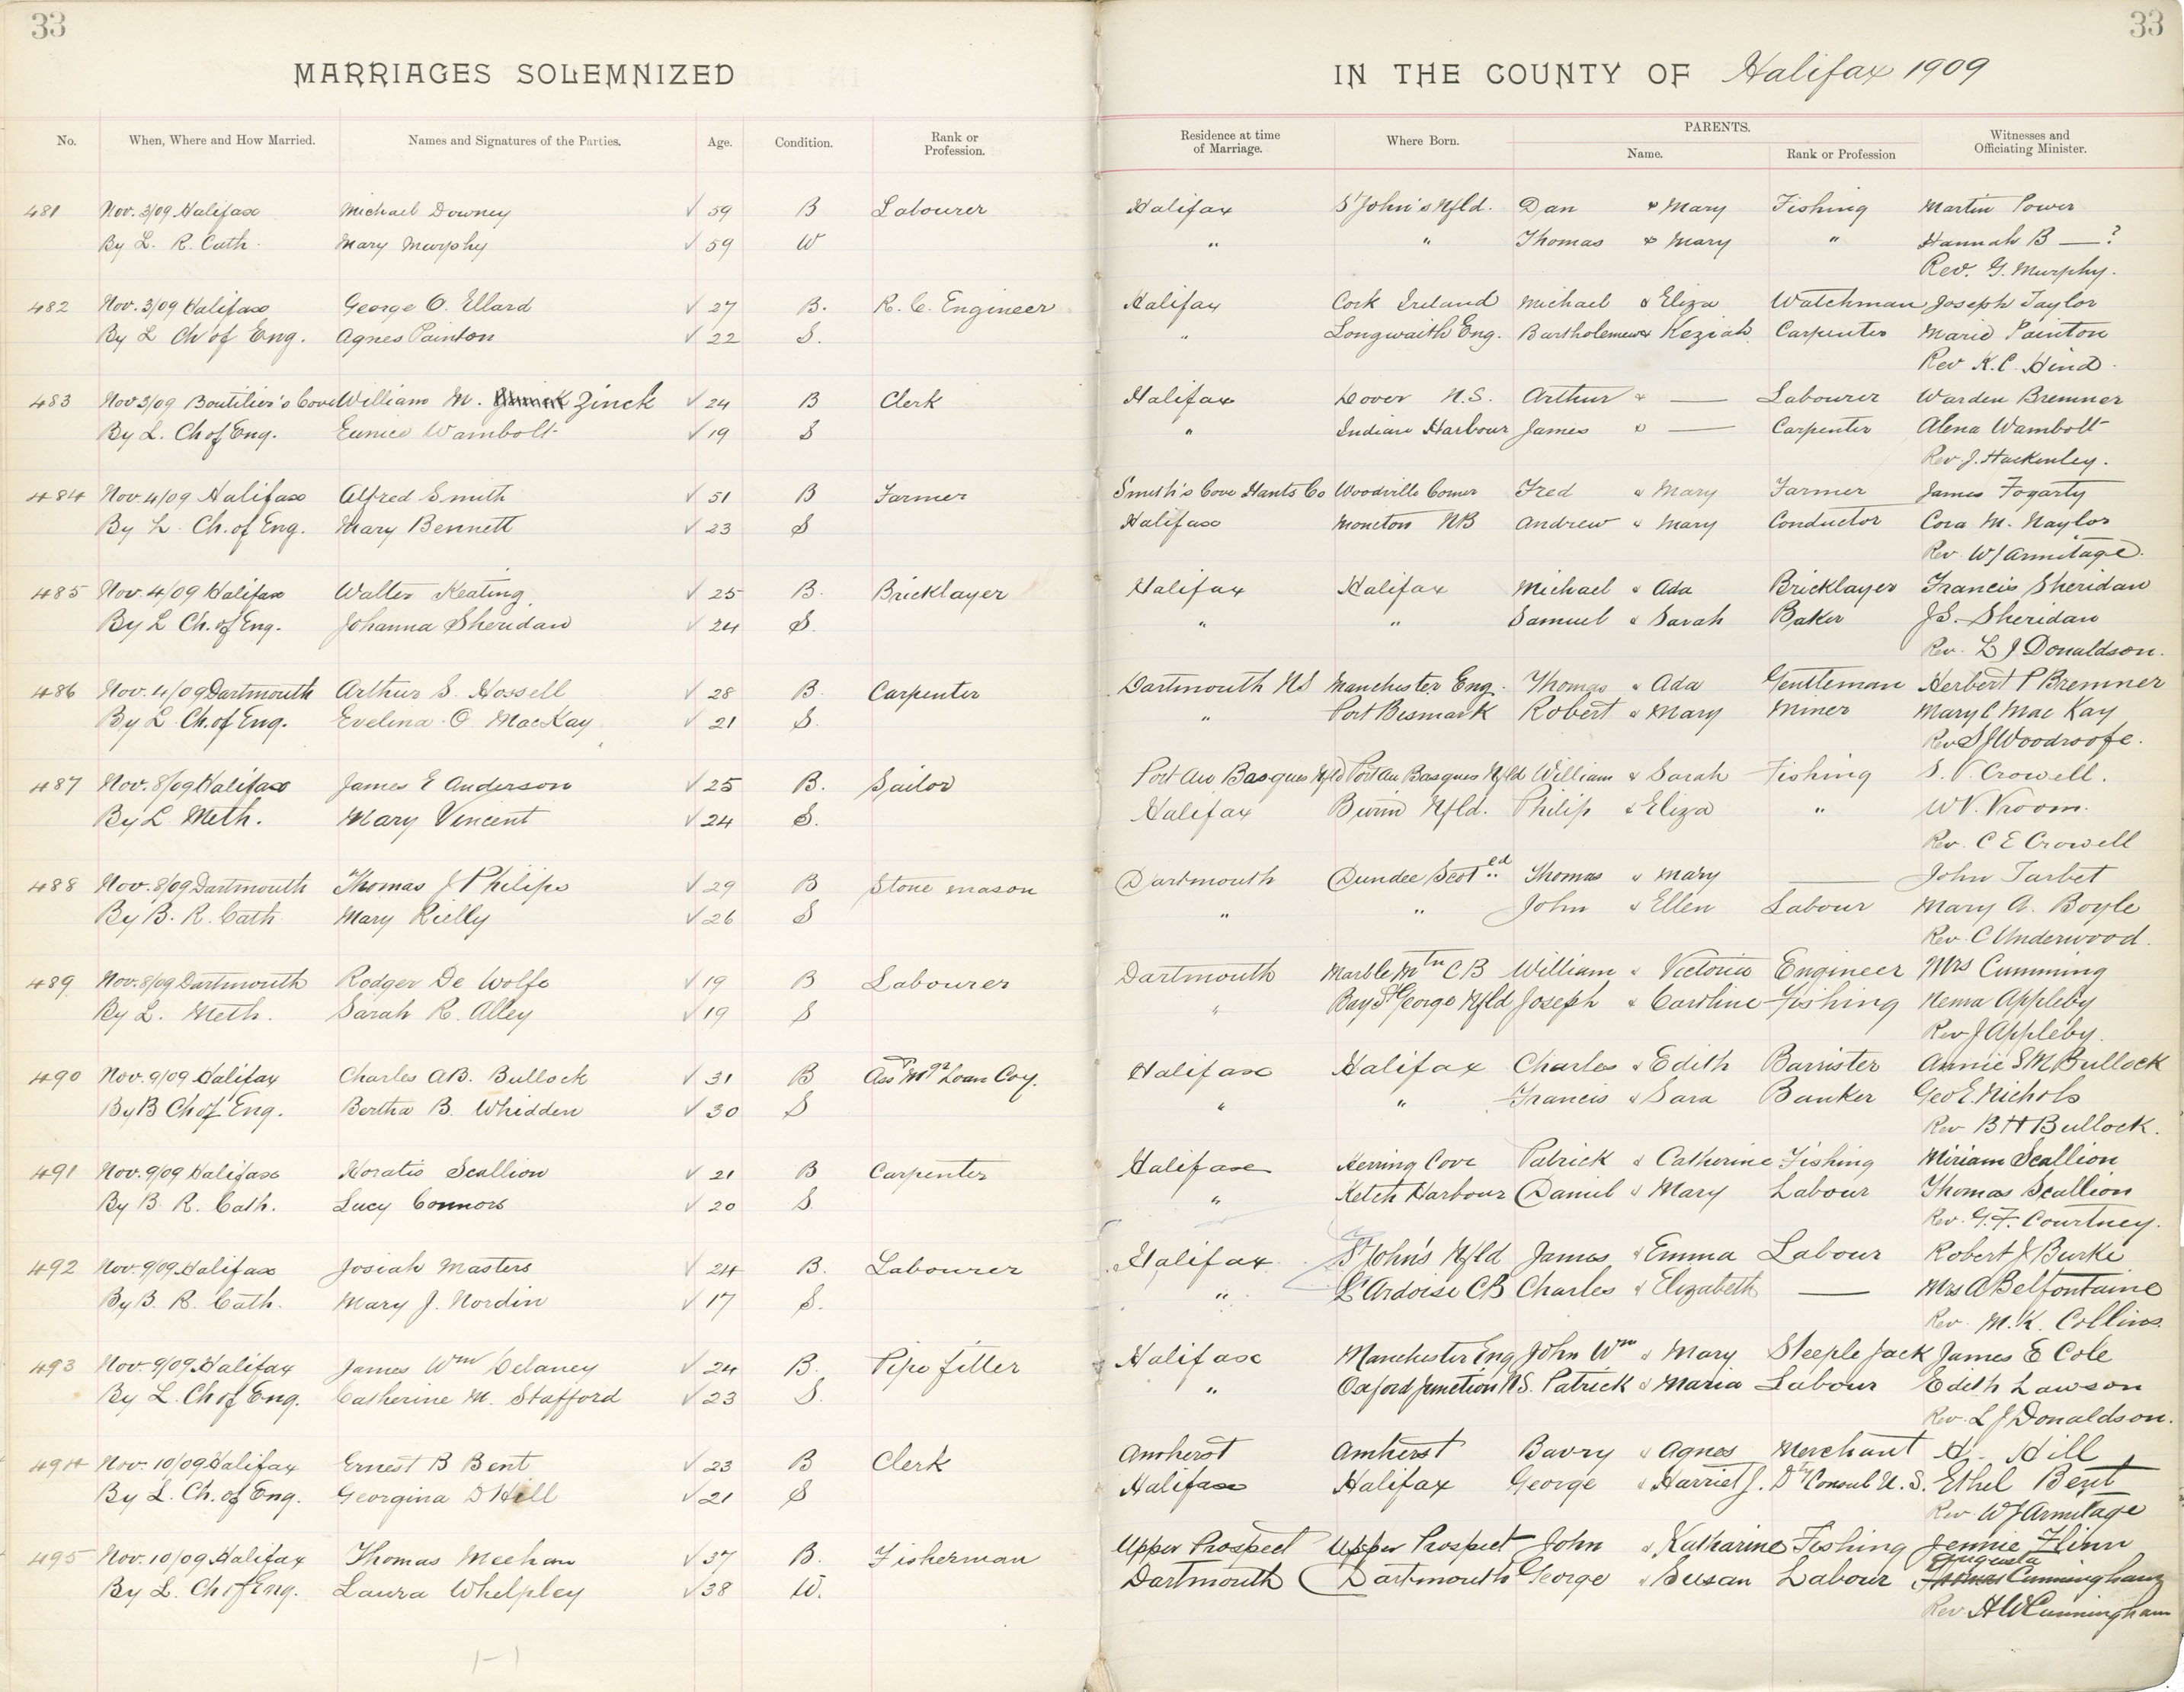 33
33
MARRIAGES SOLEMNIZED IN THE COUNTY OF Halifax 1909
No. When, Where and How Married. Names and Signatures of the Parties. Age. Condition. Rank or Profession. Residence at time of Marriage. Where Born. PARENTS. Name. Rank or Profession Witnesses and Officiating Minister.
481 Nov. 3/09 Halifax Michael Downey √ 59 B Labourer Halifax St John's Nfld. Dan & Mary Fishing Martin Power
By L. R. Cath. Mary Murphy √ 59 W " " Thomas & Mary " Hannah B — ?
Rev. G. Murphy.
482 Nov. 3/09 Halifax George O. Ellard √ 27 B. R. C. Engineer Halifax Cork Ireland Michael & Eliza Watchman Joseph Taylor
By L Ch of Eng. Agnes Painton √ 22 S. " Longwaith Eng. Bartholemew & Keziah Carpenter Marie Painton
Rev K. C. Hind.
483 Nov 3/09 Boutilier's Cove William M. Zinck √ 24 B Clerk Halifax Dover N.S. Arthur & — Labourer Warden Bremner
By L. Ch of Eng. Eunice Wambolt √ 19 S " Indian Harbour James & — Carpenter Alena Wambolt
Rev J. Hackenley.
484 Nov 4/09 Halifax Alfred Smith √ 51 B Farmer Smith's Cove Hants Co Woodville Corner Fred & Mary Farmer James Fogarty
By L. Ch. of Eng. Mary Bennett √ 23 S Halifax Moncton NB Andrew & Mary Conductor Cora M. Naylor
Rev. WJ Armitage.
485 Nov. 4/09 Halifax Walter Keating √ 25 B. Bricklayer Halifax Halifax Michael & Ada Bricklayer Francis Sheridan
By L Ch. of Eng. Johanna Sheridan √ 24 S. " " Samuel & Sarah Baker J.S. Sheridan
Rev. L J Donaldson.
486 Nov. 4/09 Dartmouth Arthur S. Hossell √ 28 B. Carpenter Dartmouth NS Manchester Eng. Thomas & Ada Gentleman Herbert P Bremner
By L Ch. of Eng. Evelina O. MacKay √ 21 S. " Port Bismark Robert & Mary Miner Mary C Mac Kay
Rev S J Woodroofe.
487 Nov. 8/09 Halifax James E Anderson √ 25 B. Sailor Port Au Basques Nfld Port Au Basques Nfld William & Sarah Fishing S. V. Crowell.
By L Meth. Mary Vincent √ 24 S. Halifax Burin Nfld. Philip & Eliza " W V. Vroom.
Rev. C E Crowell
488 Nov. 8/09 Dartmouth Thomas J Philips √ 29 B Stone mason Dartmouth Dundee Scotld Thomas & Mary — John Tarbet
By B. R. Cath Mary Rielly √ 26 S " " John & Ellen Labour Mary A. Boyle
Rev. C Underwood.
489 Nov. 8/09 Dartmouth Rodger De Wolfe √ 19 B Labourer Dartmouth Marble Mtn C B William & Victoria Engineer Mrs Cumming
By L. Meth. Sarah R. Alley √ 19 S " Bay St George Nfld Joseph & Caroline Fishing Nema Appleby
Rev J Appleby.
490 Nov. 9/09 Halifax Charles A B. Bullock √ 31 B Asst Mgr Loan Coy. Halifax Halifax Charles & Edith Barrister Annie S M Bullock
By B Ch of Eng. Bertha B. Whidden √ 30 S " " Francis & Sara Banker Geo E. Nichols
Rev B H Bullock.
491 Nov. 9/09 Halifax Horatio Scallion √ 21 B Carpenter Halifax Herring Cove Patrick & Catherine Fishing Miriam Scallion
By B. R. Cath. Lucy Connors √ 20 S. " Ketch Harbour Daniel & Mary Labour Thomas Scallion
Rev. G. F. Courtney.
492 Nov. 9/09 Halifax Josiah Masters √ 24 B. Labourer Halifax St John's Nfld James & Emma Labour Robert J Burke
By B. R. Cath. Mary J. Nordin √ 17 S. " L'Ardoise C B Charles & Elizabeth — Mrs A Belfontaine
Rev. M. K. Collins.
493 Nov. 9/09 Halifax James Wm Delaney √ 24 B. Pipe fitter Halifax Manchester Eng John Wm & Mary Steeple Jack James E Cole
By L. Ch of Eng. Catherine M. Stafford √ 23 S. " Oxford Junction N S. Patrick & Maria Labour Edith Lawson
Rev. L J Donaldson.
494 Nov. 10/09 Halifax Ernest B Bent √ 23 B Clerk Amherst Amherst Bavry & Agnes Merchant H. Hill
By L. Ch. of Eng. Georgina D Hill √ 21 S Halifax Halifax George & Harriet J. Dty Consul U. S. Ethel Bent
Rev. W J Armitage
495 Nov. 10/09 Halifax Thomas Meehan √ 37 B. Fisherman Upper Prospect Upper Prospect John & Katharine Fishing Jennie Flinn
By L. Ch of Eng. Laura Whelpley √ 38 W. Dartmouth Dartmouth George & Susan Labour Augusta Cunningham
Rev. H W Cunningham